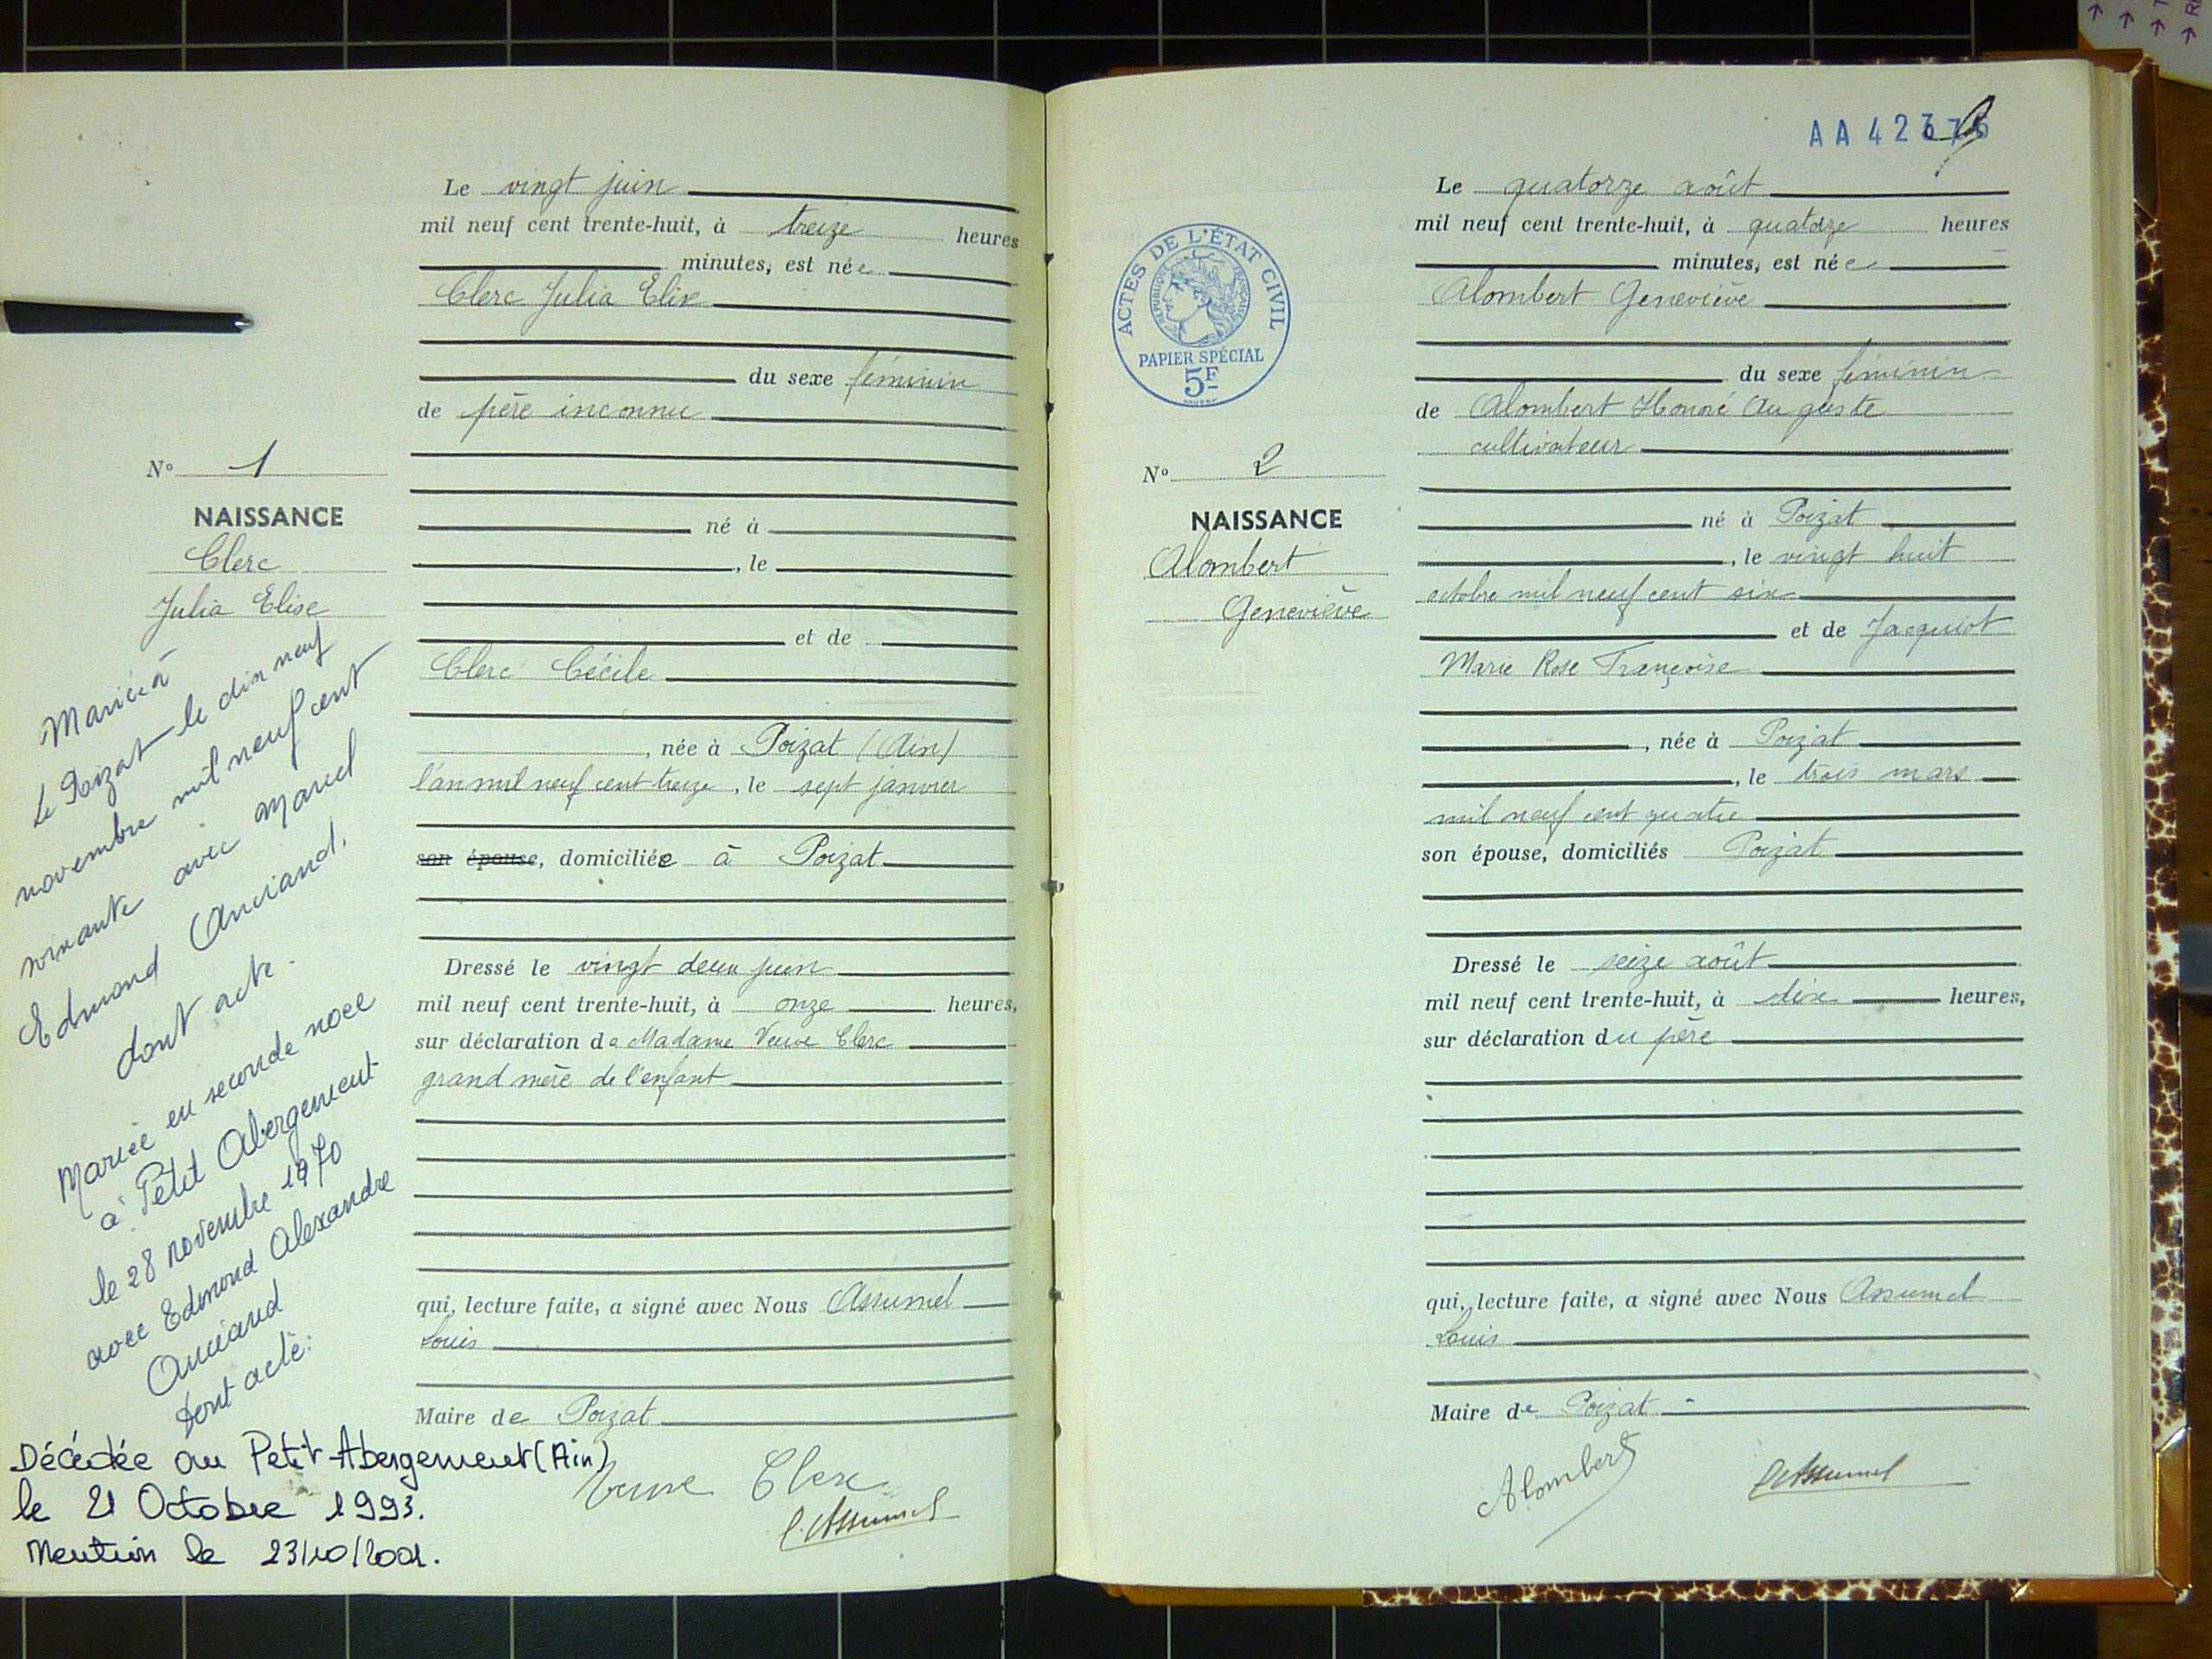 Le vingt juin
mil neuf cent trente-huit, à treize heures
minutes, est née
Clerc Julia Elise
du sexe féminin
de père inconnu
N° 1
NAISSANCE
Clerc
Julia Elise
né à
, le
et de
Clerc Cécile
, née à Poizat (Ain)
l'an mil neuf cent treize, le sept janvier
son épouse, domiciliée à Poizat
Dressé le vingt deux juin
mil neuf cent trente-huit, à onze heures,
sur déclaration de Madame Veuve Clerc
grand mère de l'enfant
qui, lecture faite, a signé avec Nous Assumel
Louis
Maire de Poizat
Veuve Clerc
L. Assumel
Mariée à
Le Poizat le dix neuf
novembre mil neuf cent
soixante avec Marcel
Edmond Anciand.
dont acte.
Mariée en seconde noce
à Petit Abergement
le 28 novembre 1970
avec Edmond Alexandre
Anciand
Dont acte:
Décédée au Petit-Abergement (Ain)
le 21 Octobre 1993.
Mention le 23/10/2001.
AA 423
Le quatorze août
mil neuf cent trente-huit, à quatorze heures
minutes, est née
Alombert Geneviève
ACTES DE L'ÉTAT CIVIL
RÉPUBLIQUE FRANÇAISE
PAPIER SPÉCIAL
5F
du sexe féminin
de Alombert Honoré Auguste
cultivateur
N° 2
NAISSANCE
Alombert
Geneviève
né à Poizat
, le vingt huit
octobre mil neuf cent six
et de Jacquiot
Marie Rose Françoise
, née à Poizat
, le trois mars
mil neuf cent quatre
son épouse, domiciliés Poizat
Dressé le seize août
mil neuf cent trente-huit, à dix heures,
sur déclaration du père
qui, lecture faite, a signé avec Nous Assumel
Louis
Maire de Poizat
Alombert
L. Assumel